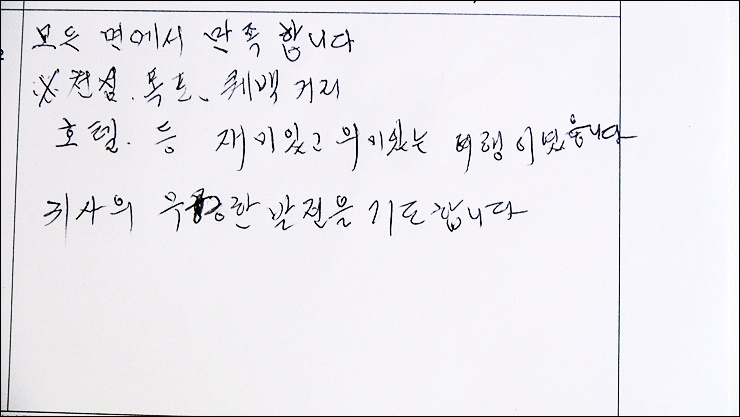 모든 면에서 만족합니다
※천섬.폭포.퀘백 거리
호텔.등 재미있고 의미있는 여행이었습니다
귀사의 무궁한 발전을 기도합니다